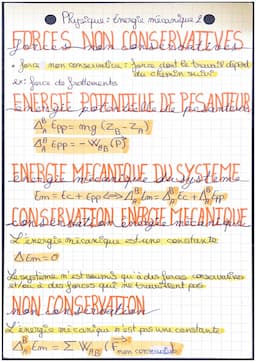 Physique : énergie mécanique 2
FORCES NON CONSERVATIVES
• force non conservative : force dont le travail dépend
du chemin suivi
ex: force de frottements
ENERGIE POTENTIELLE DE PESANTEUR
Δ_A^B Epp = mg (Z_B - Z_A)
Δ_A^B Epp = - W_AB (P⃗)
ENERGIE MECANIQUE DU SYSTEME
Em = Ec + Epp ⟺ Δ_A^B Em = Δ_A^B Ec + Δ_A^B Epp
CONSERVATION ENERGIE MECANIQUE
L'énergie mécanique est une constante
ΔEm = 0
Le système n'est soumis qu'à des forces conservatives
et/ou à des forces qui ne travaillent pas
NON CONSERVATION
L'énergie mécanique n'est pas une constante
Δ_A^B Em = Σ W_AB (F⃗ non conservatives)